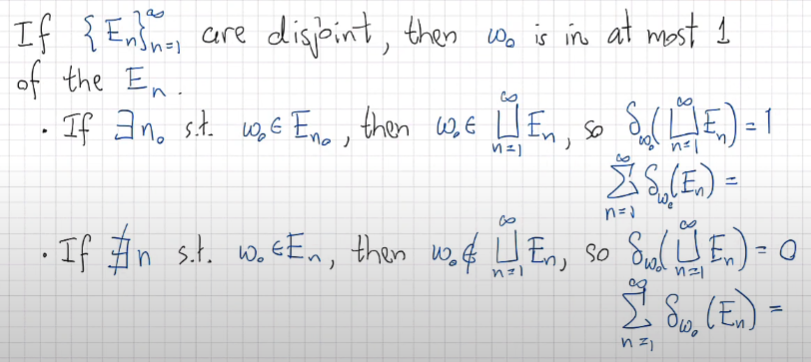 If {Eₙ}ₙ₌₁^∞ are disjoint, then ω₀ is in at most 1
of the Eₙ.
· If ∃n₀ s.t. ω₀∈Eₙ₀, then ω₀∈ ⨆ₙ₌₁^∞ Eₙ, so δ_ω₀(⨆ₙ₌₁^∞ Eₙ) = 1
∑ₙ₌₁^∞ δ_ω₀(Eₙ) =
· If ∄n s.t. ω₀∈Eₙ, then ω₀∉ ⨆ₙ₌₁^∞ Eₙ, so δ_ω₀(⨆ₙ₌₁^∞ Eₙ) = 0
∑ₙ₌₁^∞ δ_ω₀(Eₙ) =